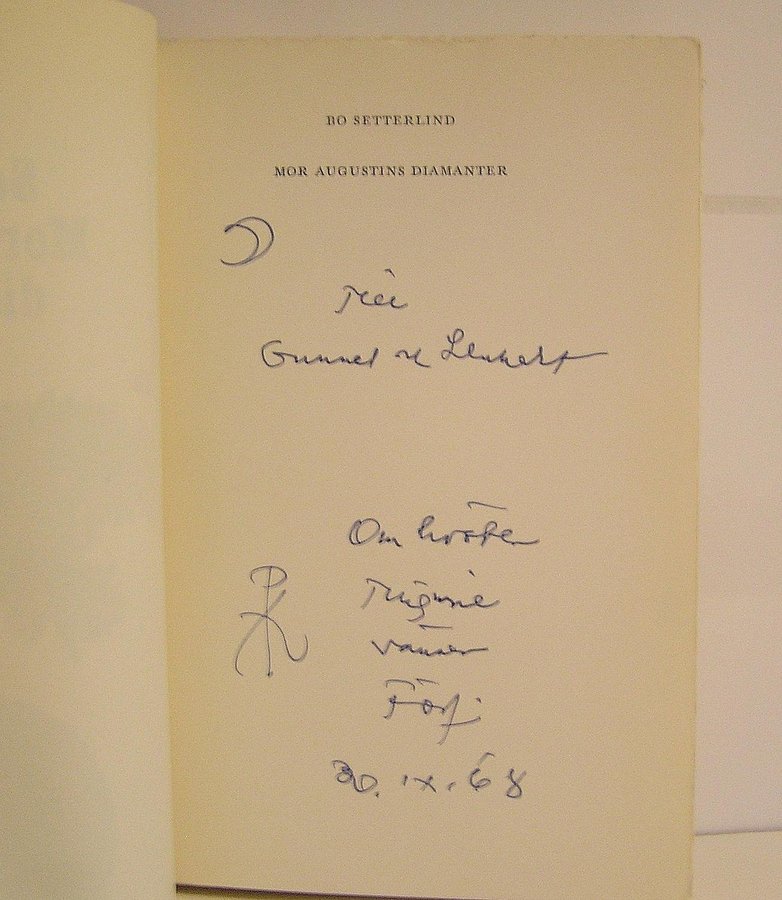 BO SETTERLIND
MOR AUGUSTINS DIAMANTER
Till
Gunnel och Lennart
Om hösten
vänner
Förf.
30. IX. 68